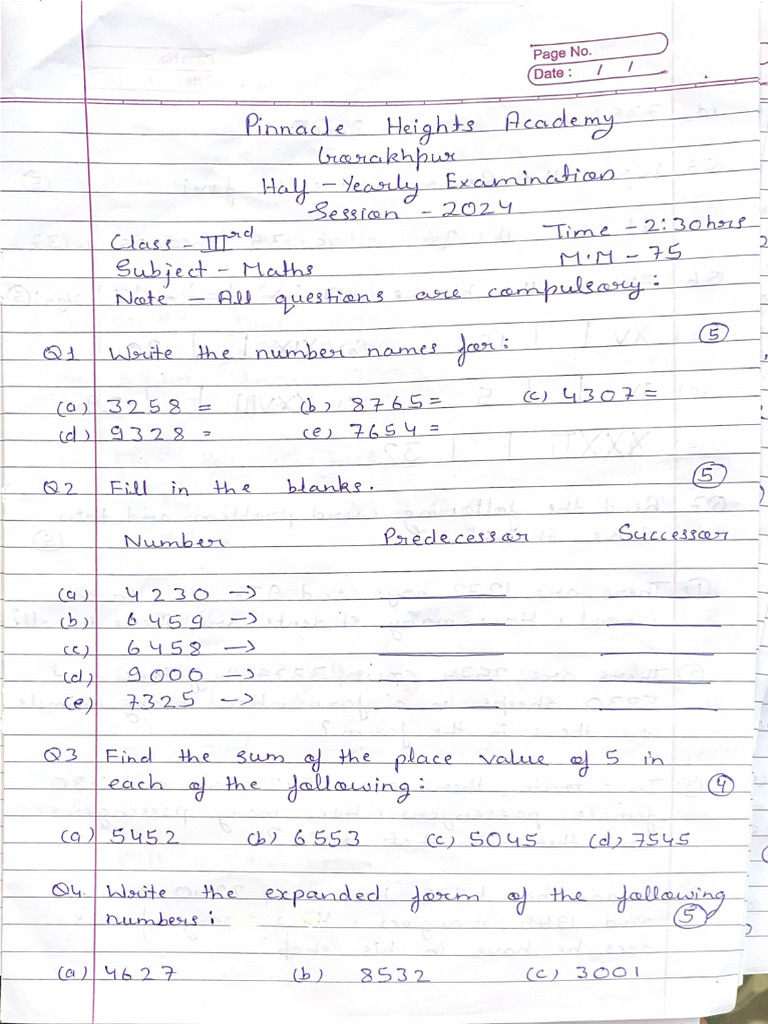 Page No.
Date : / /
Pinnacle Heights Academy
Gorakhpur
Half - Yearly Examination
Session - 2024
Class - IIIrd Time - 2:30hrs
Subject - Maths M.M - 75
Note - All questions are compulsory :
Q1 Write the number names for : 5
(a) 3258 = (b) 8765 = (c) 4307 =
(d) 9328 = (e) 7654 =
Q2 Fill in the blanks. 5
Number Predecessor Successor
(a) 4230 →
(b) 6459 →
(c) 6458 →
(d) 9000 →
(e) 7325 →
Q3 Find the sum of the place value of 5 in
each of the following : 4
(a) 5452 (b) 6553 (c) 5045 (d) 7545
Q4. Write the expanded form of the following
numbers : 5
(a) 4627 (b) 8532 (c) 3001